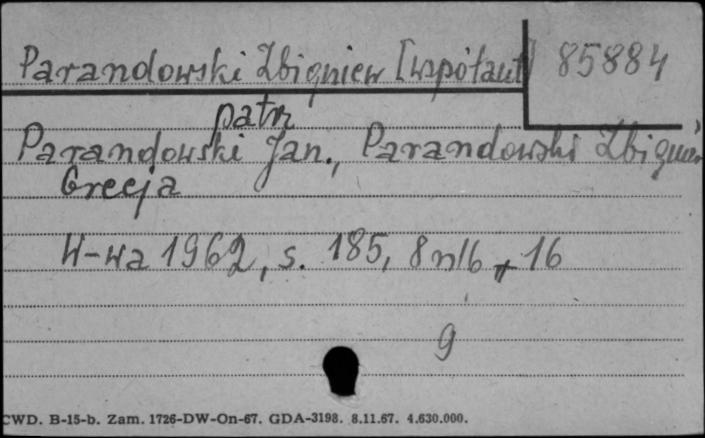 Parandowski Zbigniew [współaut] 85884
patrz
Parandowski Jan., Parandowski Zbigniew
Grecja
W-wa 1962, s. 185, 8 nlb + 16
9
CWD. B-15-b. Zam. 1726-DW-On-67. GDA-3198. 8.11.67. 4.630.000.